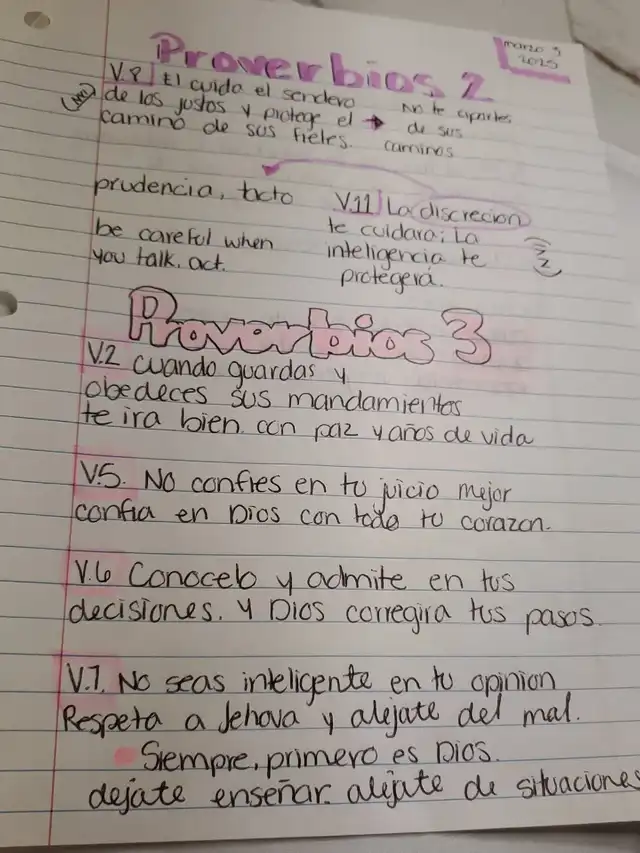 Proverbios 2
marzo 9
2025
V.8 El cuida el sendero
de los justos y protege el →
camino de sus fieles.
No te apartes
de sus
caminos
prudencia, tacto
be careful when
you talk. act.
V.11 La discrecion
te cuidara; La
inteligencia te
protegerá.
Proverbios 3
V.2 cuando guardas y
obedeces sus mandamientos
te ira bien. con paz y años de vida
V.5. No confies en tu juicio mejor
confia en Dios con todo tu corazon.
V.6 Conocelo y admite en tus
decisiones. y Dios corregira tus pasos.
V.7. No seas inteligente en tu opinion
Respeta a Jehova y alejate del mal.
Siempre, primero es Dios.
dejate enseñar. alejate de situaciones